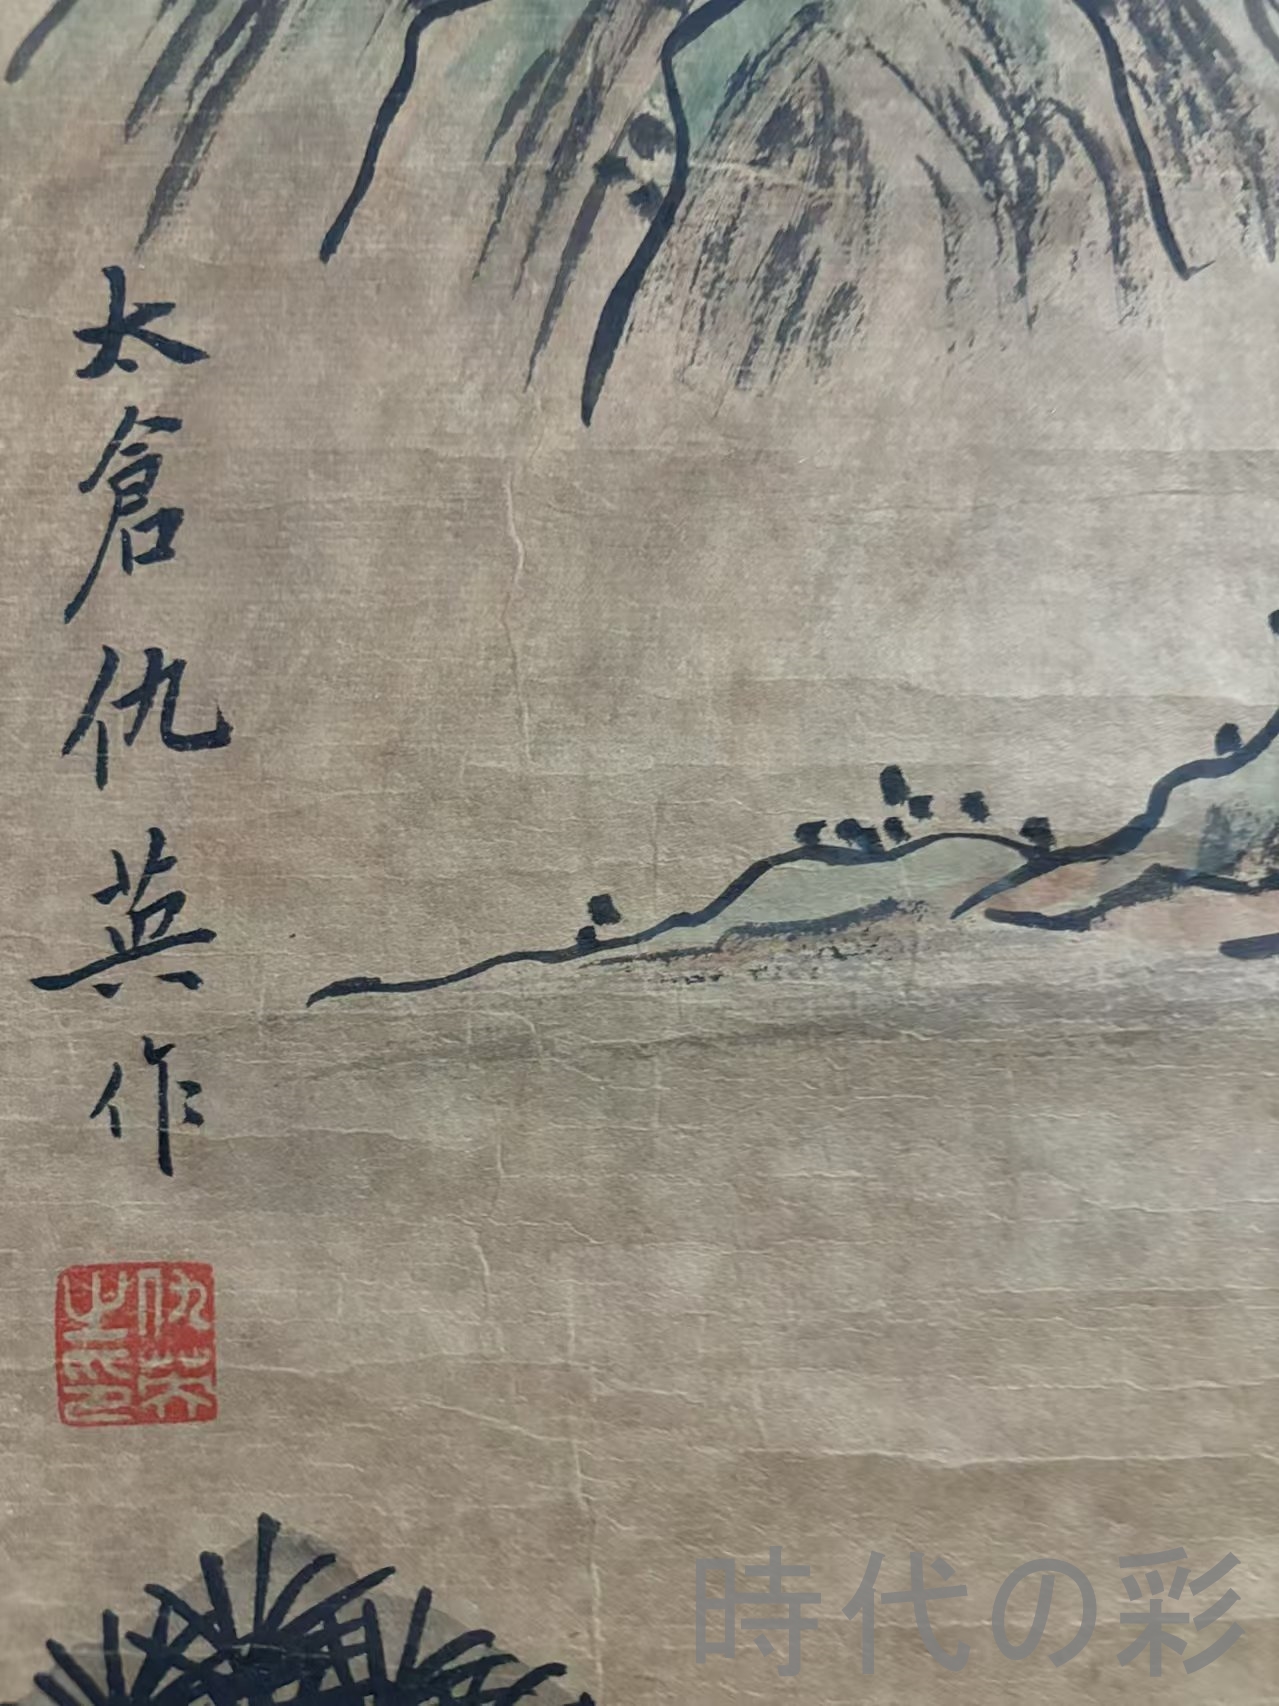 太倉仇英作
仇英
之印
時代の彩